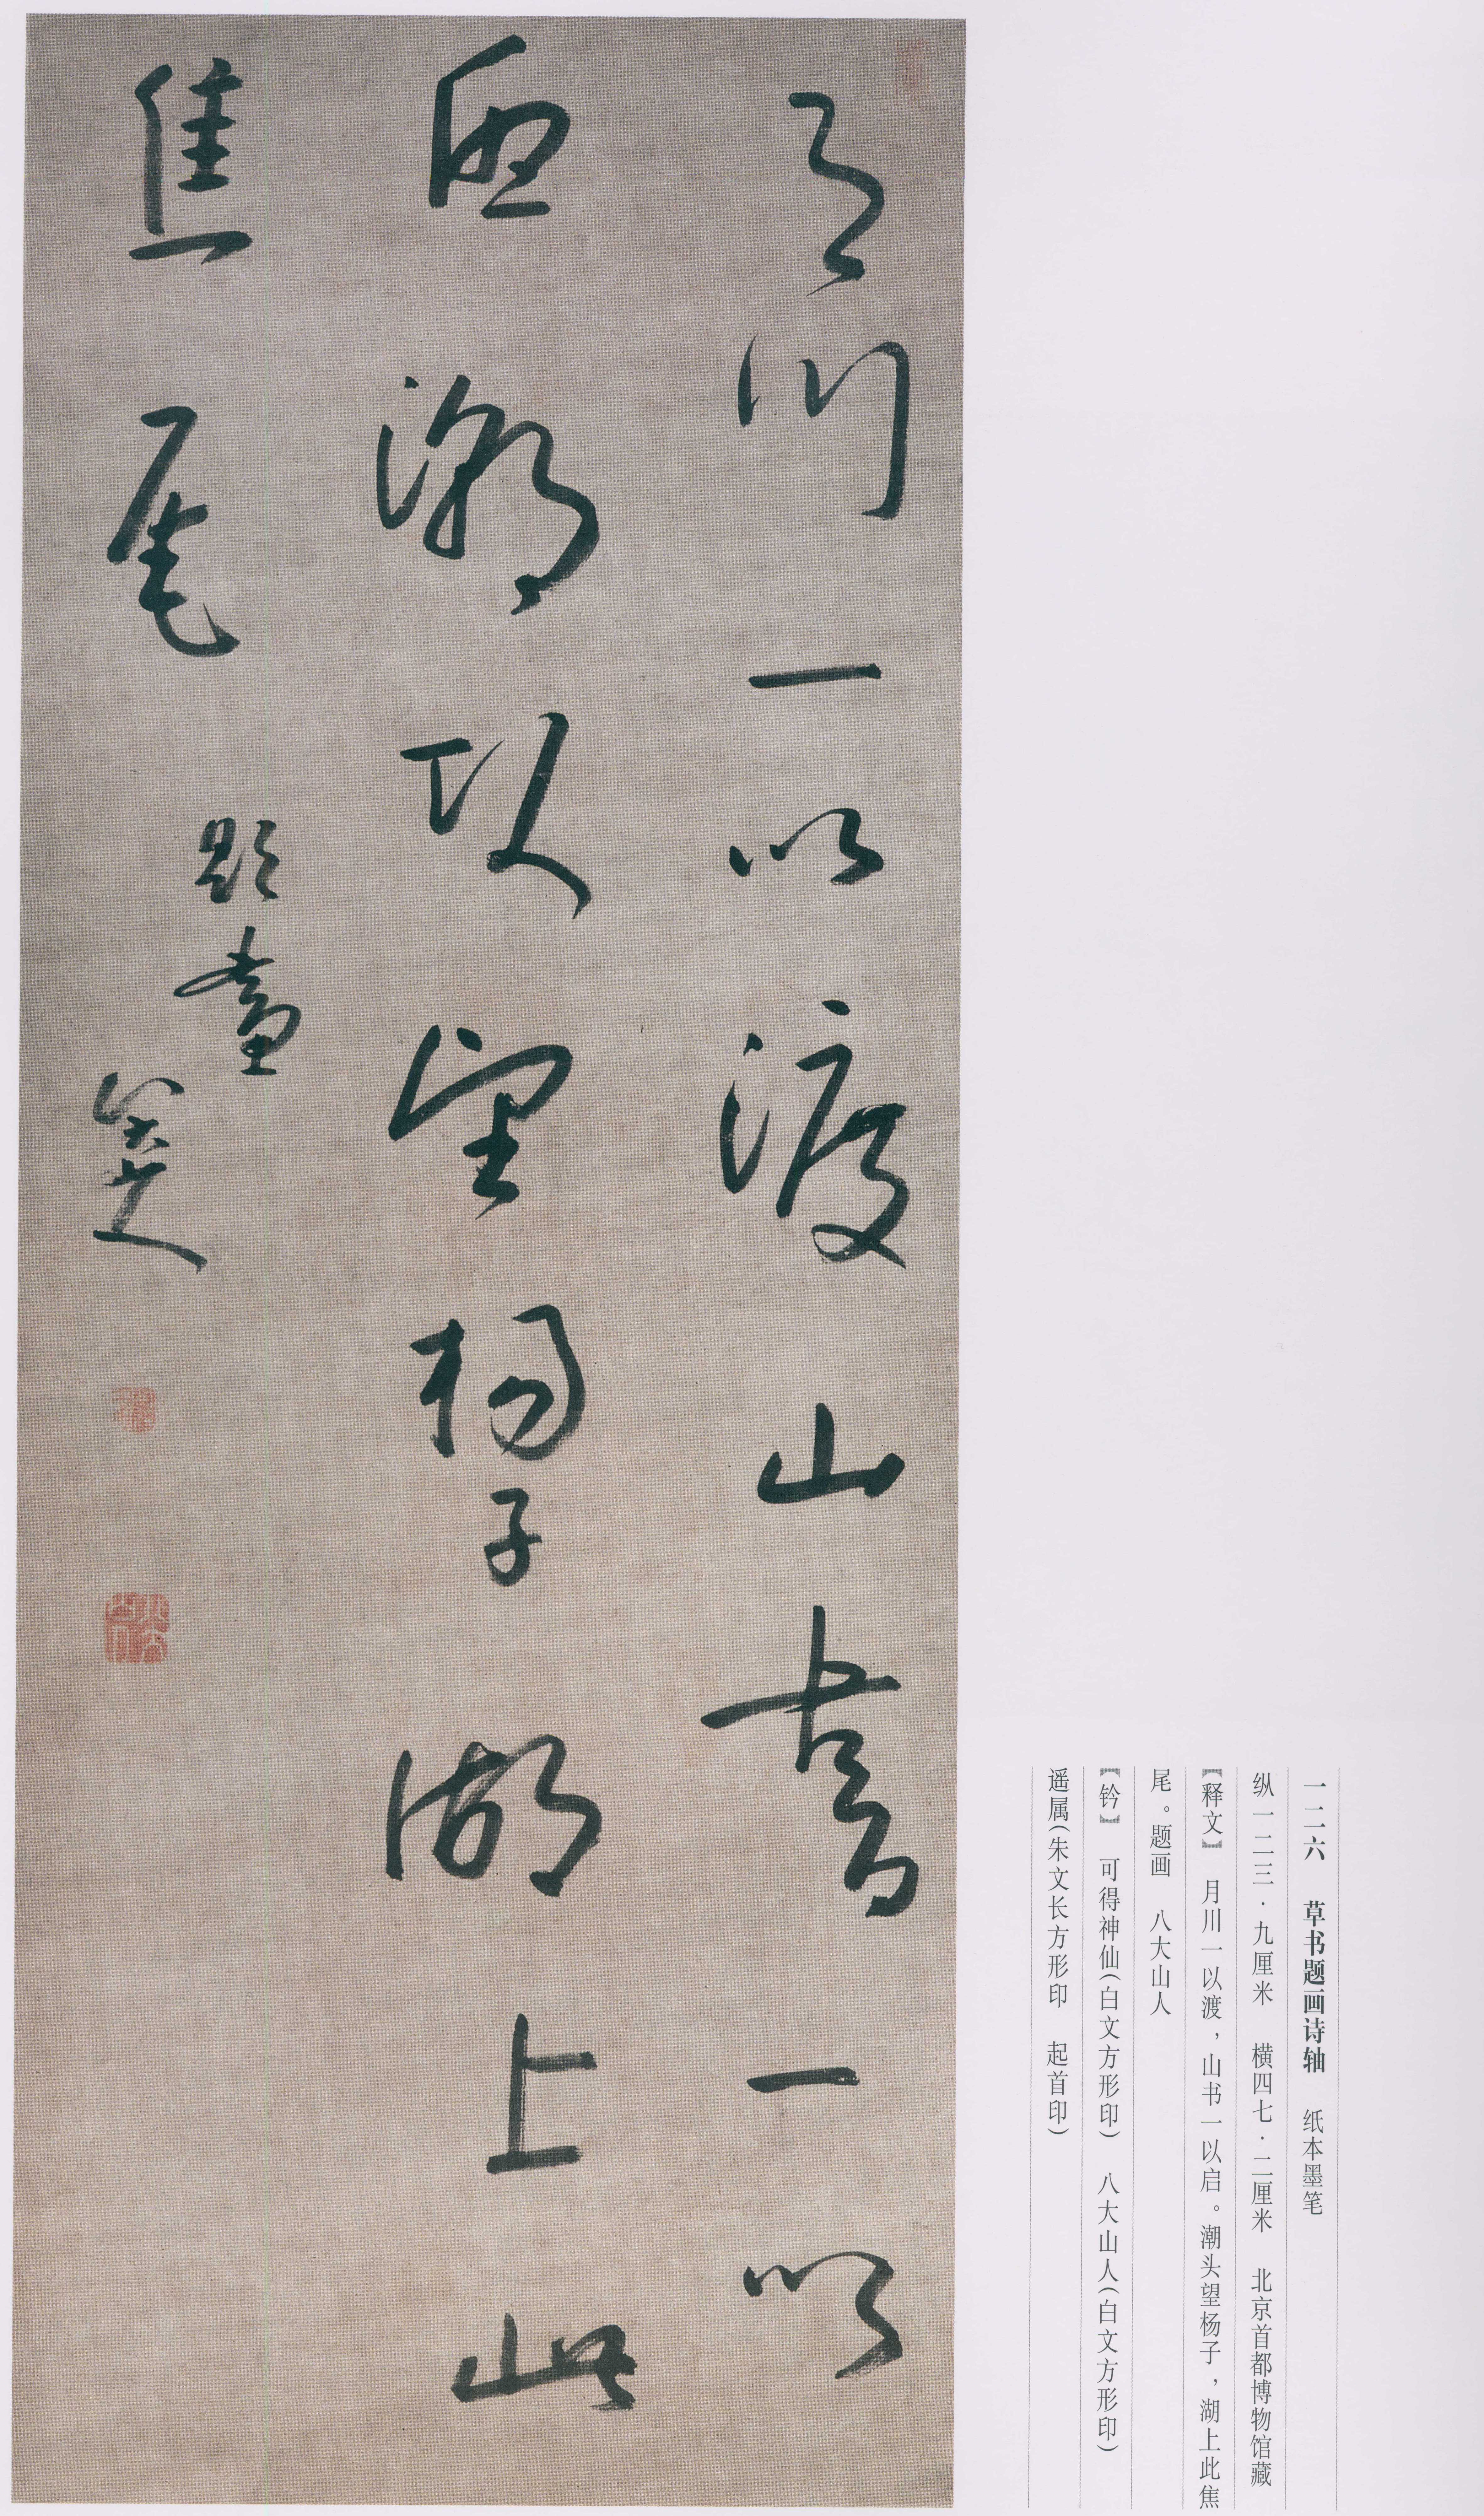 一二六 草书题画诗轴 纸本墨笔
纵一二三·九厘米 横四七·二厘米 北京首都博物馆藏
【释文】 月川一以渡，山书一以启。潮头望杨子，湖上此焦
尾。题画 八大山人
【钤】 可得神仙（白文方形印） 八大山人（白文方形印）
遥属（朱文长方形印 起首印）
月川一以渡山書一以
启潮頭望楊子湖上此
焦尾
題畫
八大山人
可得神仙
八大山人